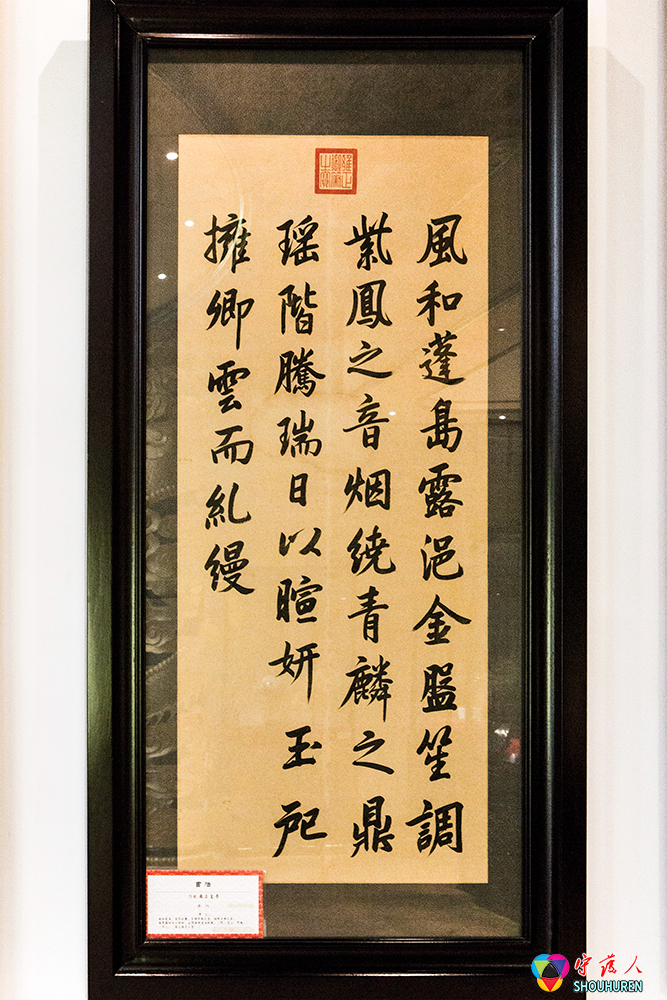 雍正御筆之寶
風和蓬島露浥金盤笙調
紫鳳之音烟繞青麟之鼎
瑶階騰瑞日以暄妍玉戺
擁卿雲而糺縵
書法
SHOUHUREN